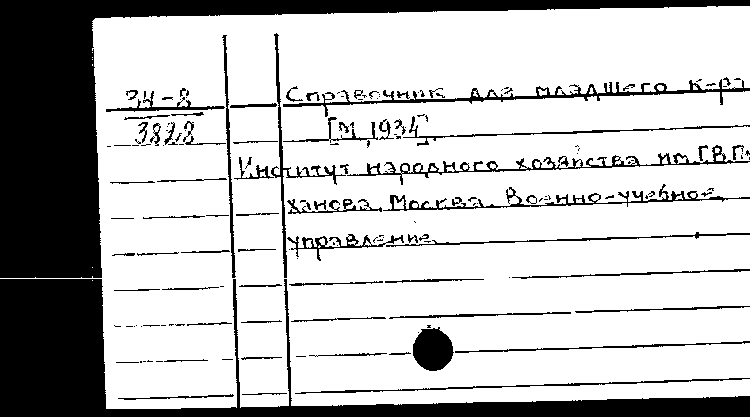 34-8
3828
Справочник для младшего к-ра
[М, 1934].
Институт народного хозяйства им. Г.В. Пле
ханова, Москва. Военно-учебное
управление.